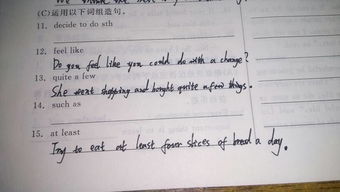 (C)运用以下词组造句。
11. decide to do sth
12. feel like
Do you feel like you could do with a change?
13. quite a few
She went shopping and bought quite a few things.
14. such as
15. at least
Try to eat at least four slices of bread a day.